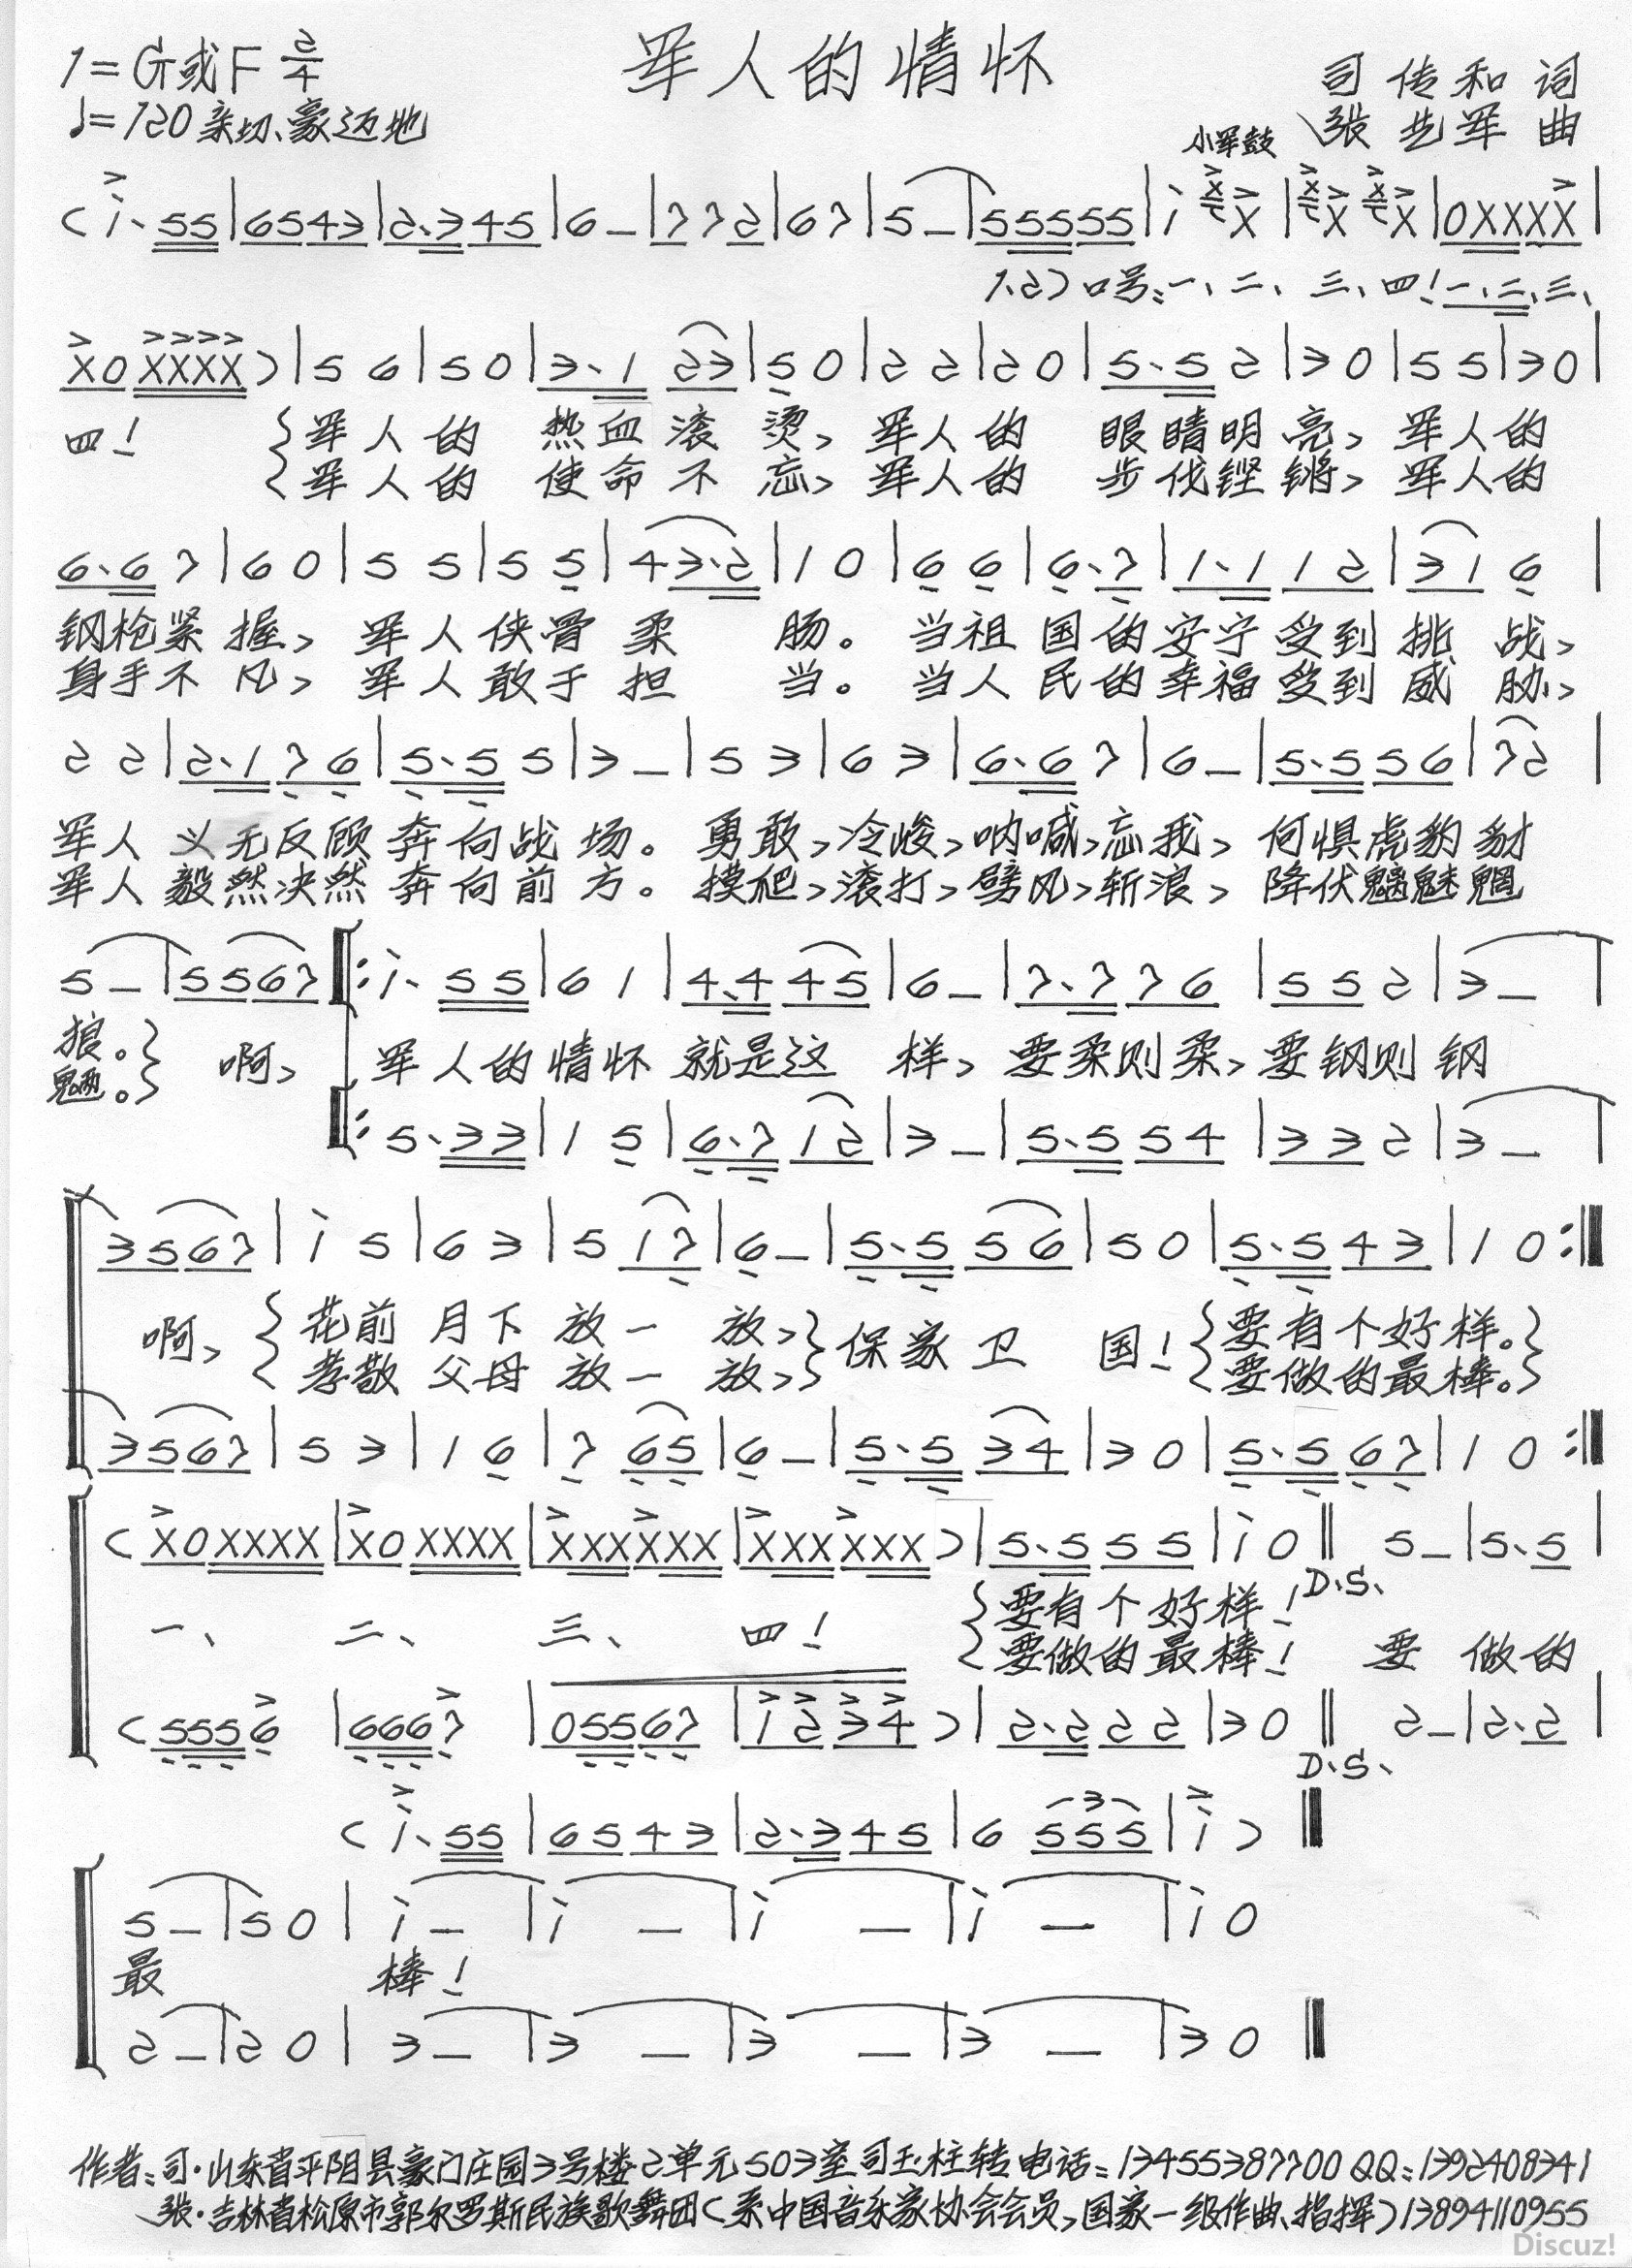 军人的情怀
1=G或F 2/4
司传和 词
♩=120 亲切、豪迈地
张艺军 曲
小军鼓
( i· 55 | 6543 | 2·345 | 6 - | 7 7 2 | 6 7 | 5 - | 55555 | i X X | X X X X | 0XXXX |
1.2) 口号:一、二、三、四!一、二、三、
X0 XXXX ) | 5 6 | 5 0 | 3·1 23 | 5 0 | 2 2 | 2 0 | 5·5 2 | 3 0 | 5 5 | 3 0 |
四! 军人的 热血滚烫, 军人的 眼睛明亮, 军人的
军人的 使命不忘, 军人的 步伐铿锵, 军人的
6·6 7 | 6 0 | 5 5 | 5 5 | 43·2 | 1 0 | 6 6 | 6·7 | 1·1 1 2 | 3 1 6 |
钢枪紧握, 军人侠骨柔肠。 当祖国的安宁受到挑战,
身手不凡, 军人敢于担当。 当人民的幸福受到威胁,
2 2 | 2·1 7 6 | 5·5 5 | 3 - | 5 3 | 6 3 | 6·6 7 | 6 - | 5·5 5 6 | 7 2 |
军人义无反顾奔向战场。 勇敢,冷峻,呐喊,忘我, 何惧虎豹豺
军人毅然决然奔向前方。 摸爬,滚打,劈风,斩浪, 降伏魑魅魍
5 - | 5567 |: i· 55 | 6 1 | 4·4 45 | 6 - | 7·7 7 6 | 5 5 2 | 3 - |
狼。 啊, 军人的情怀就是这样, 要柔则柔,要钢则钢
魉。
|: 5·33 | 1 5 | 6·7 1 2 | 3 - | 5·5 5 4 | 3 3 2 | 3 - |
3567 | i 5 | 6 3 | 5 17 | 6 - | 5·5 5 6 | 5 0 | 5·5 4 3 | 1 0 :|
啊, 花前月下放一放, 保家卫国! 要有个好样。
孝敬父母放一放, 要做的最棒。
3567 | 5 3 | 1 6 | 7 65 | 6 - | 5·5 34 | 3 0 | 5·5 67 | 1 0 :|
( X0XXXX | X0XXXX | XXXXXX | XXXXXX ) | 5·5 5 5 | i 0 || 5 - | 5·5 |
D.S.
一、二、三、四! 要有个好样!
要做的最棒! 要做的
( 5556 | 6667 | 05567 | 1 2 3 4 ) | 2·2 2 2 | 3 0 || 2 - | 2·2 |
D.S.
( i·55 | 6543 | 2·345 | 6 555 | i )
5 - | 5 0 | i - | i - | i - | i - | i 0
最 棒!
2 - | 2 0 | 3 - | 3 - | 3 - | 3 - | 3 0
作者:司·山东省平阴县豪门庄园3号楼2单元503室司玉柱转 电话:13455387700 QQ:1392408341
张·吉林省松原市郭尔罗斯民族歌舞团(系中国音乐家协会会员,国家一级作曲、指挥)13894110955
Discuz!